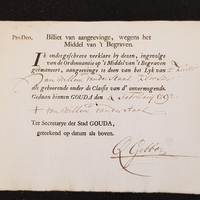 Pro Deo. Billiet van aangevinge, wegens het
Middel van 't Begraven.
Ik ondergeschreve verklare by dezen, ingevolge
van de Ordonnantie op 't Middel van 't Begraven
geëmaneert, aangevinge te doen van het Lyk van
Jan Willem van der Staal
als gehoorende onder de Classis van d' onvermogende.
Gedaan binnen GOUDA, den 2 1792
Willem van der Staal
Ter Secretarye der Stad GOUDA,
geteekend op datum als boven.